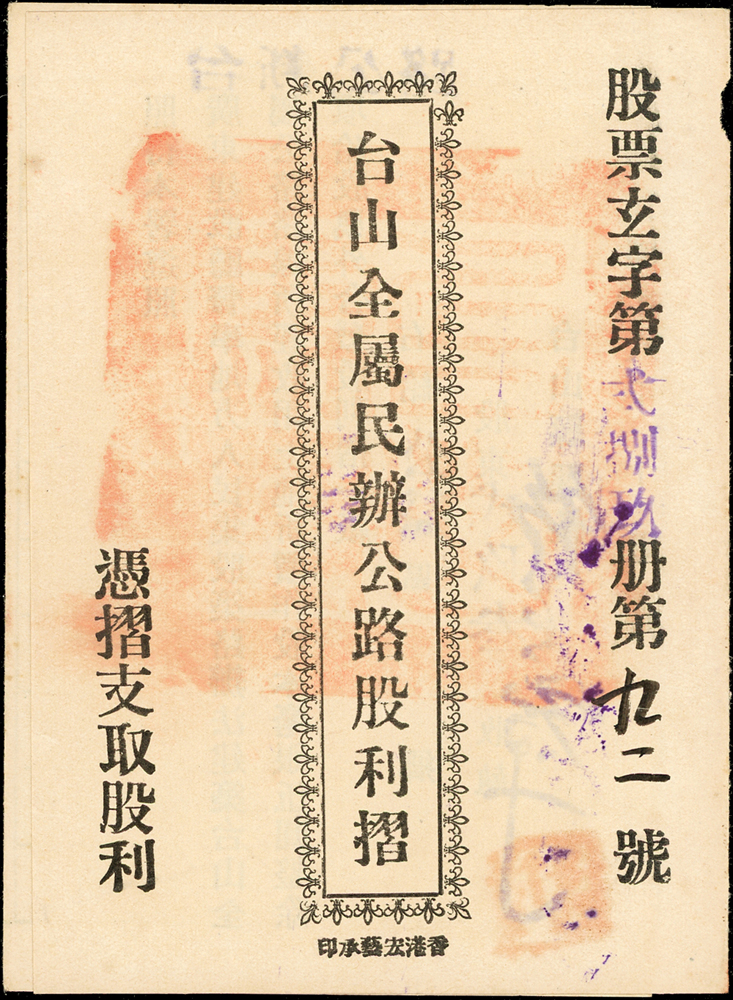 股票玄字第弍捌玖册第九二號
台山全屬民辦公路股利摺
憑摺支取股利
香港宏藝承印